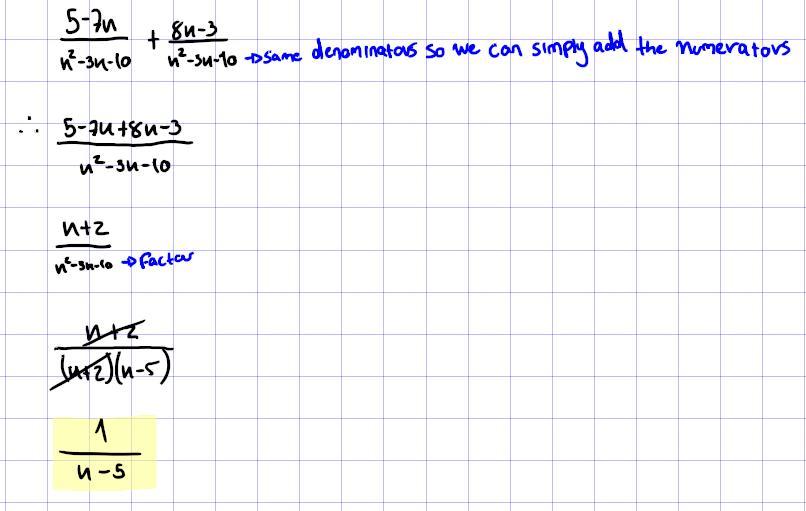 5-7n/n²-3n-10 + 8n-3/n²-3n-10 → same denominators so we can simply add the numerators
∴ 5-7n+8n-3/n²-3n-10
n+2/n²-3n-10 → factor
n+2/(n+2)(n-5)
1/n-5